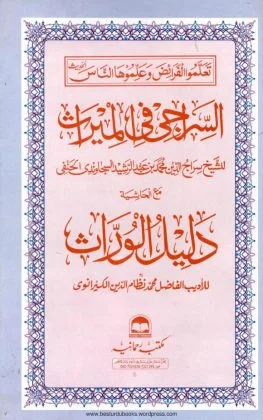 تعلموا الفرائض وعلموها الناس الحديث
السراجي في الميراث
للشيخ سراج الدين محمد بن عبد الرشيد السجاوندي الحنفي
مع الحاشية
دليل الوراث
للأديب الفاضل محمد نظام الدين الكيرانوي
مکتبہ رحمانیہ
www.besturdubooks.wordpress.com